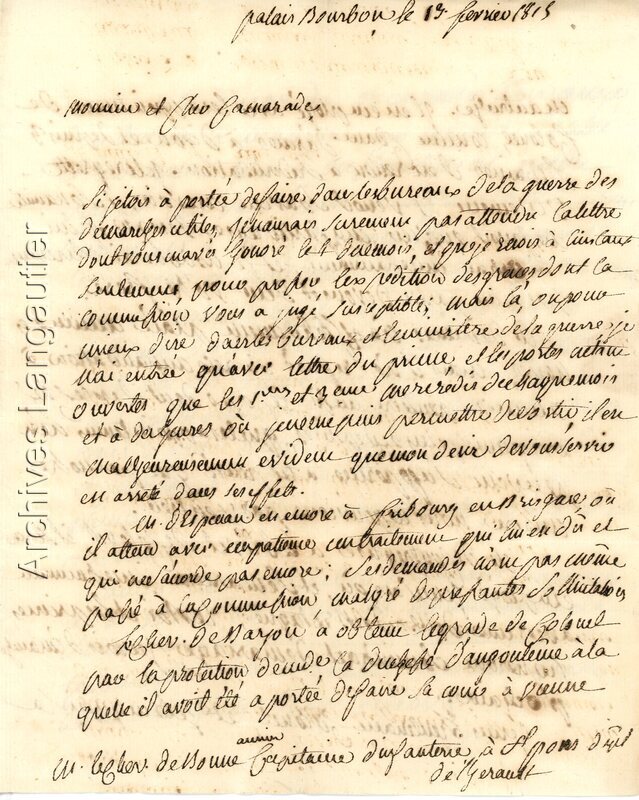 palais Bourbon le 13 fevrier 1815
Monsieur et Cher Camarade,
Si j'etois à portée de faire dans les bureaux de la guerre des
démarches utiles, j'e n'aurois surement pas attendu la lettre
dont vous m'avés honoré le 1 du mois, et que je reçois à l'instant
seulement pour l'expedition des graces dont la
commission vous a jugé susceptible; mais là, ou pour
mieux dire dans les bureaux et le ministere de la guerre, je
n'ai entrée qu'avec lettre du prince et les portes
ouvertes que les 1ers et 3eme mercredis de chaque mois
et à des heures où je ne me puis permettre de sortir il est
malheureusement evident que mon desir de vous servir
est arreté dans ses effets.
M. d'Espinan est encore à fribourg en Brisgaw où
il attend avec impatience un traitement qui lui est dû et
qui ne s'acorde pas encore; ses demandes n'ont pas même
passé à la Commission malgré de pressantes sollicitations
Le Cher. de Barjon a obtenu le grade de Colonel
par la protection de mde la duchesse d'angoulême à la
quelle il avoit été a portée de faire sa cour à vienne
M. le Cher. de Bonne ancien Capitaine d'infanterie à St pons dépt
de l'herault
Archives Langautier